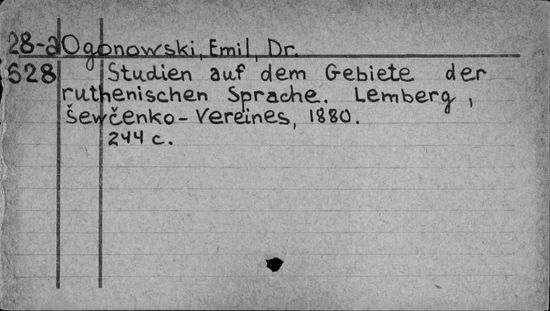 28-а Ogonowski, Emil, Dr.
628 Studien auf dem Gebiete der
ruthenischen Sprache. Lemberg,
Ševčenko-Vereines, 1880.
244 c.